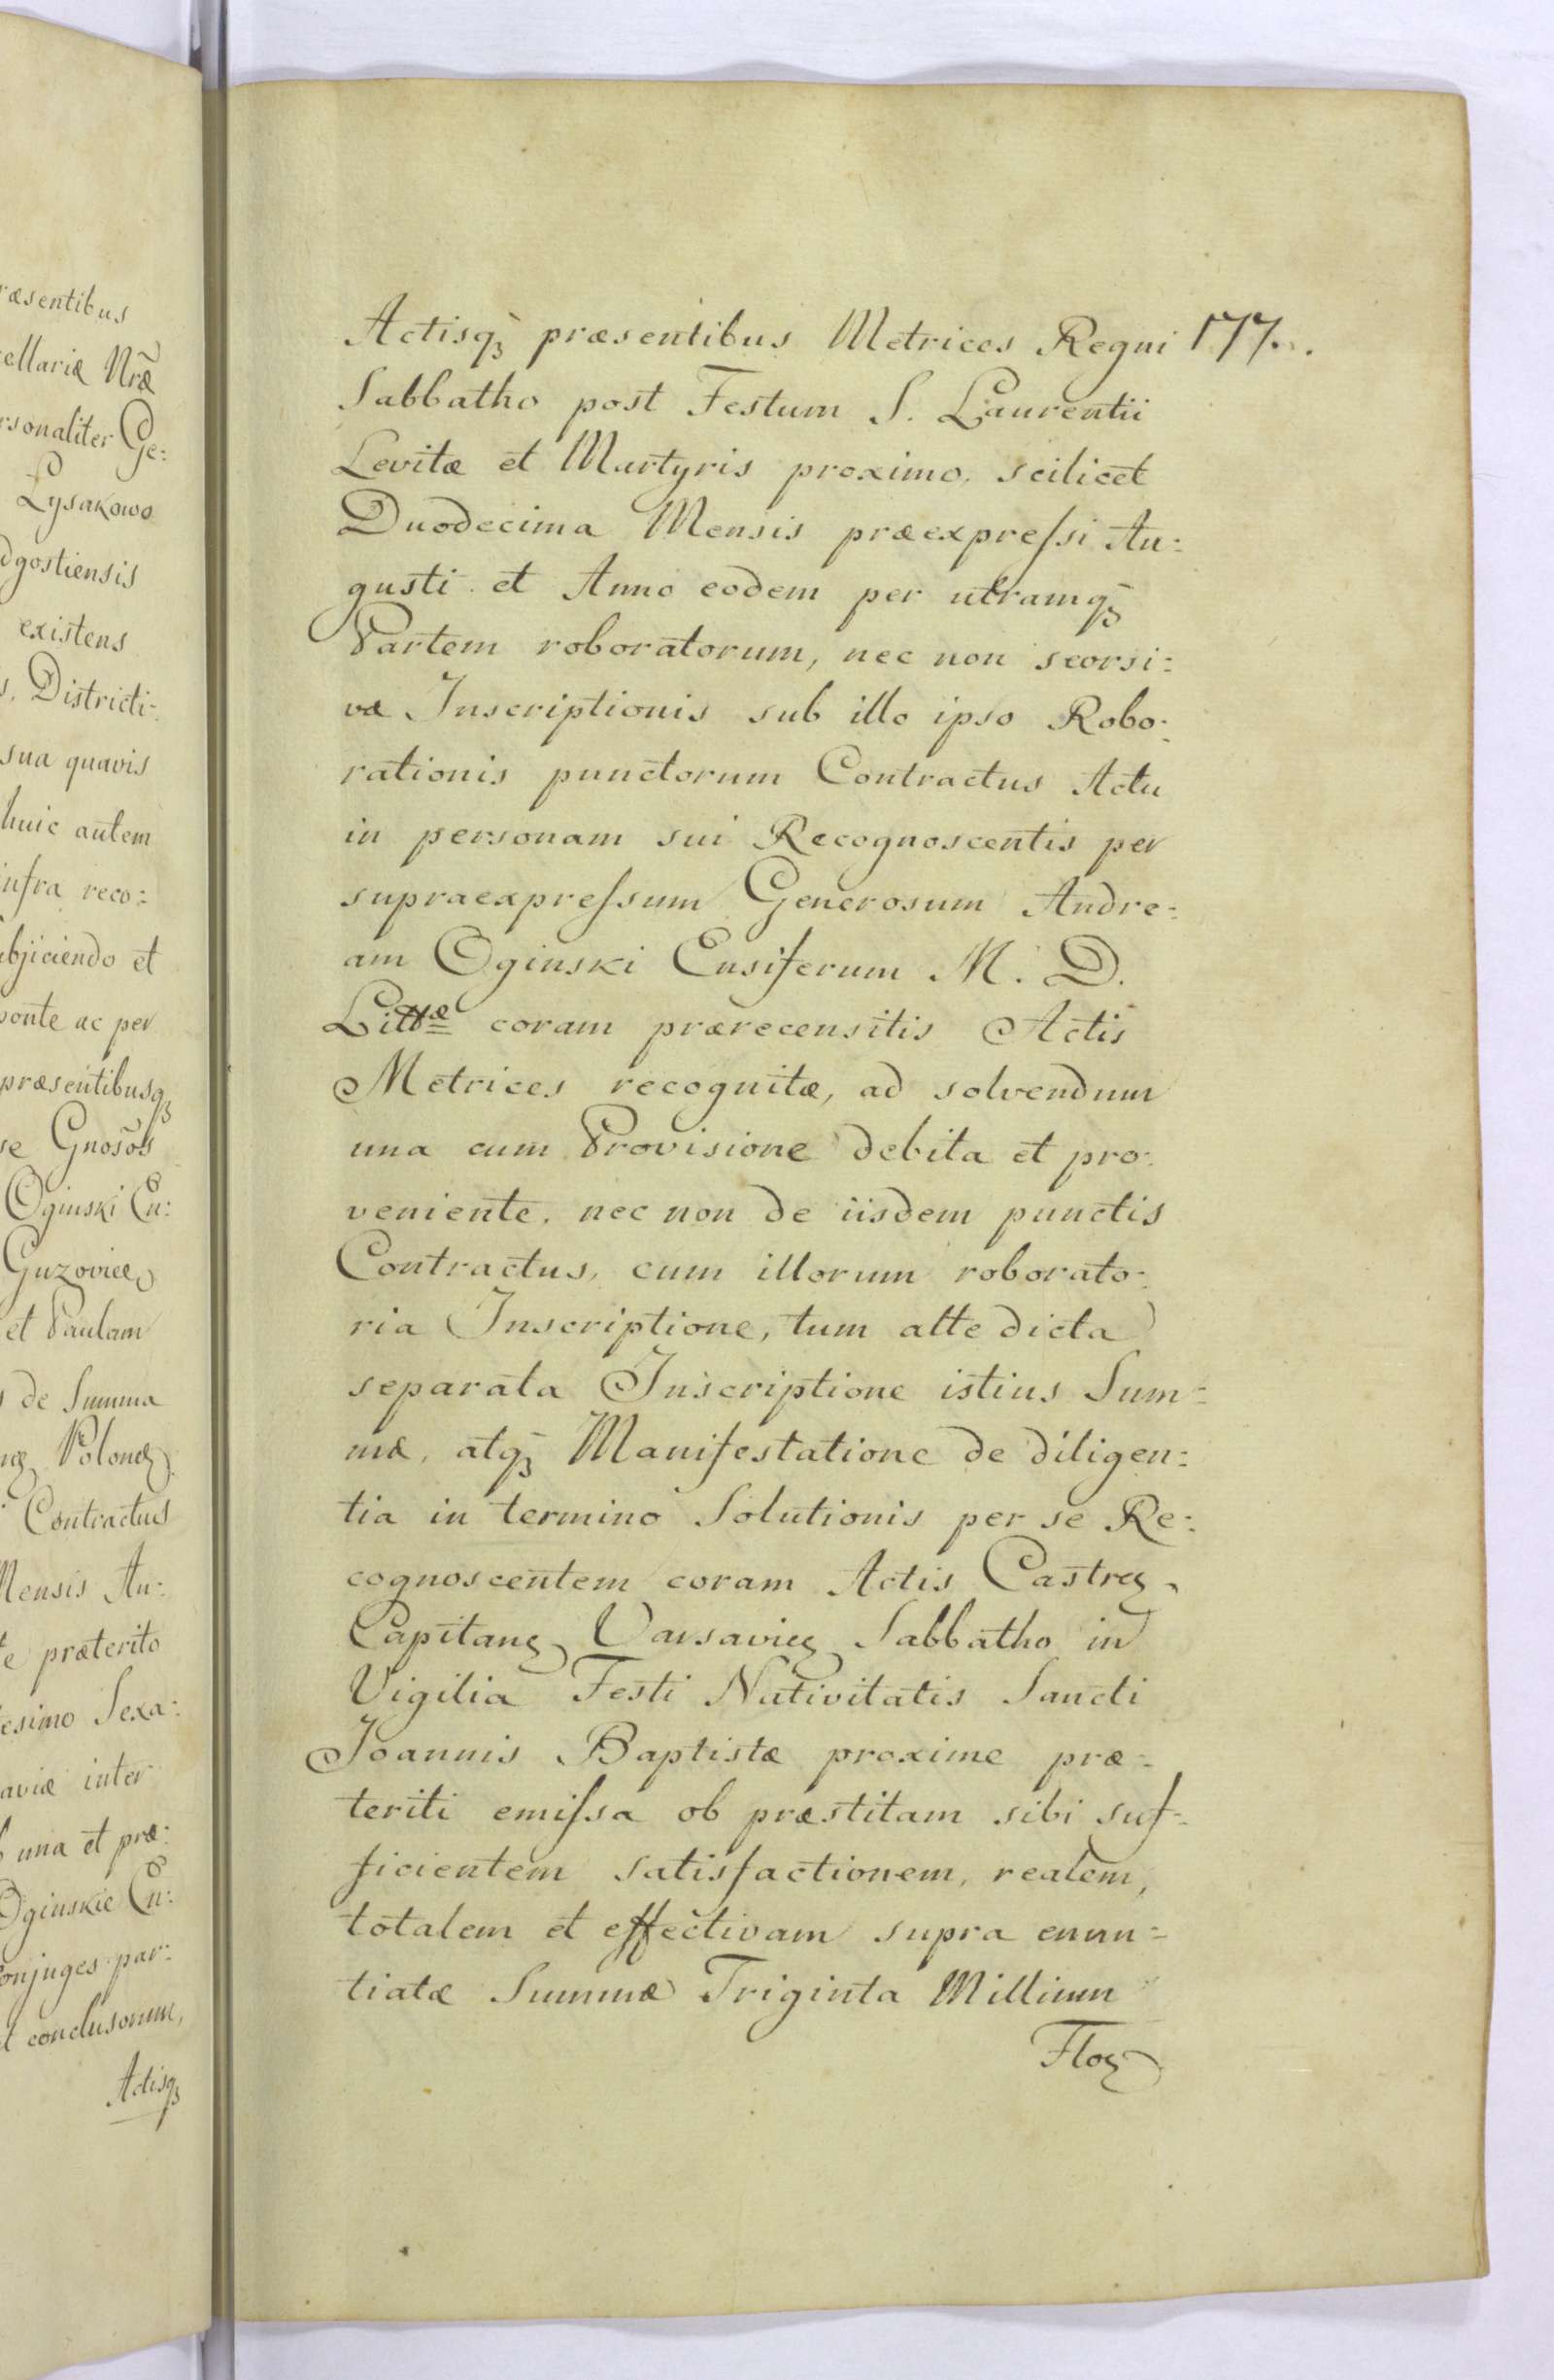 ræsentibus
ellariæ Nræ̃
rsonaliter Ge:
Łysakowo
dgostiensis
existens
s. Districti:
sua quavis
huic autem
infra reco:
bjiciendo et
ponte ac per
præsentibusqꝫ
se Gnosos̃
Oginski En:
Guzoviee
et Paulam
de Summa
Polonꝫ
Contractus
Mensis Au:
te præterito
esimo Sexa:
aviæ inter
una et præ:
Oginskie En:
onjuges par:
t conclusorum,
Actisqꝫ
Actisqꝫ præsentibus Metrices Regni 177.
Sabbatho post Festum S. Laurentii
Levitæ et Martyris proximo, scilicet
Duodecima Mensis præexpreſsi Au:
gusti et Anno eodem per utramqꝫ
Partem roboratorum, nec non seorsi:
væ Inscriptionis sub illo ipso Robo:
rationis punctorum Contractus Actu
in personam sui Recognoscentis per
supraexpreſsum Generosum Andre:
am Oginski Ensiferum M. D.
Littæ coram prærecensitis Actis
Metrices recognitæ, ad solvendum
una cum Provisione debita et pro:
veniente, nec non de iisdem punctis
Contractus, cum illorum roborato:
ria Inscriptione, tum alte dicta
separata Inscriptione istius Sum:
mæ, atqꝫ Manifestatione de diligen:
tia in termino Solutionis per se Re:
cognoscentem coram Actis Castreꝫ
Capitaneꝫ Varsavieꝫ Sabbatho in
Vigilia Festi Nativitatis Sancti
Joannis Baptistæ proxime præ:
teriti emiſsa ob præstitam sibi suf:
ficientem satisfactionem, realem,
totalem et effectivam supra enun:
tiatæ Summæ Triginta Millium
Floꝝ